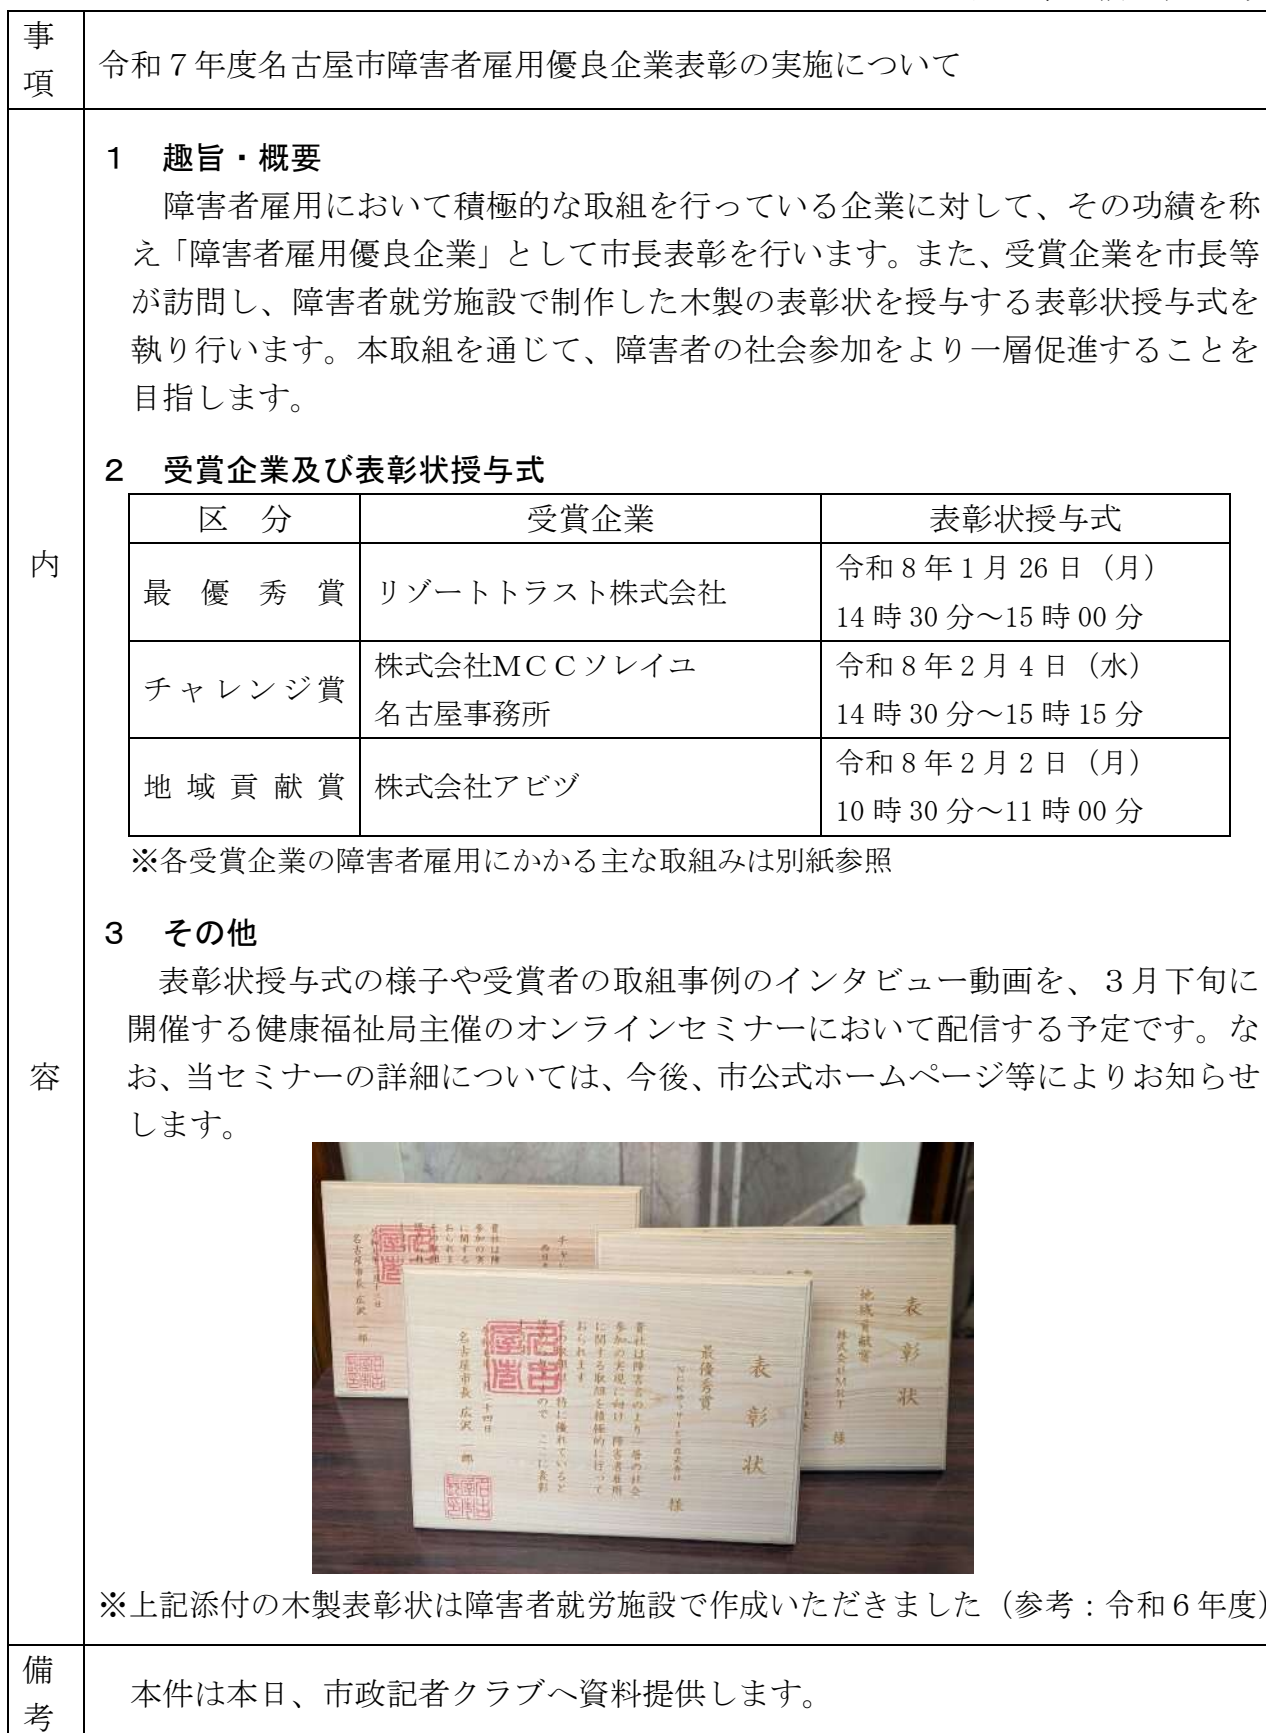 事項
令和７年度名古屋市障害者雇用優良企業表彰の実施について
内容
１　趣旨・概要
障害者雇用において積極的な取組を行っている企業に対して、その功績を称
え「障害者雇用優良企業」として市長表彰を行います。また、受賞企業を市長等
が訪問し、障害者就労施設で制作した木製の表彰状を授与する表彰状授与式を
執り行います。本取組を通じて、障害者の社会参加をより一層促進することを
目指します。
２　受賞企業及び表彰状授与式
区　分　受賞企業　表彰状授与式
最優秀賞　リゾートトラスト株式会社
令和８年１月 26 日（月）
14 時 30 分～15 時 00 分
チャレンジ賞
株式会社ＭＣＣソレイユ
名古屋事務所
令和８年２月４日（水）
14 時 30 分～15 時 15 分
地域貢献賞　株式会社アビヅ
令和８年２月２日（月）
10 時 30 分～11 時 00 分
※各受賞企業の障害者雇用にかかる主な取組みは別紙参照
３　その他
表彰状授与式の様子や受賞者の取組事例のインタビュー動画を、３月下旬に
開催する健康福祉局主催のオンラインセミナーにおいて配信する予定です。な
お、当セミナーの詳細については、今後、市公式ホームページ等によりお知らせ
します。
表彰状
最優秀賞
様
貴社は障害者のより一層の社会
参加の実現に向け 障害者雇用
に関する取組を積極的に行って
おられます
特に優れていると
ので ここに表彰
名古屋市長 広沢 一郎
表彰状
地域貢献賞
株式会社ＭＲＴ 様
名古屋市長 広沢 一郎
※上記添付の木製表彰状は障害者就労施設で作成いただきました（参考：令和６年度）
備考
本件は本日、市政記者クラブへ資料提供します。